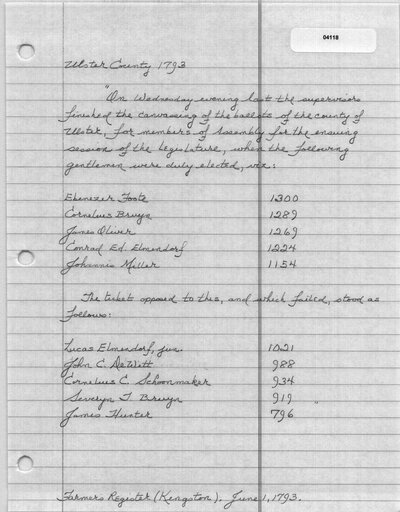 04118
Ulster County 1793
"On Wednesday evening last the supervisors
finished the canvassing of the ballots of the county of
Ulster, for members of Assembly for the ensuing
session of the Legislature, when the following
gentlemen were duly elected, viz:
Ebenezer Foote 1300
Cornelius Bruyn 1289
James Oliver 1269
Conrad Ed. Elmendorf 1224
Johannis Miller 1154
The ticket opposed to this, and which failed, stood as
follows:
Lucas Elmendorf, jun. 1021
John C. DeWitt 988
Cornelius C. Schoonmaker 934
Severyn T. Bruyn 919 "
James Hunter 796
Farmers Register (Kingston). June 1, 1793.